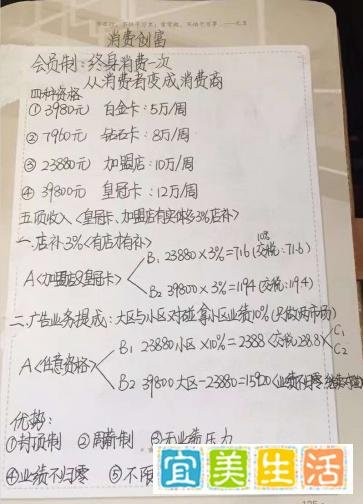 消费创富
会员制：终身消费一次
从消费者变成消费商
四种资格
① 3980元 白金卡：5万/周
② 7960元 钻石卡：8万/周
③ 23880元 加盟店：10万/周
④ 39800元 皇冠卡：12万/周
五项收入<皇冠卡、加盟店有实体店3%店补>
一、店补3%<有店才有补>
10%
B₁ 23880×3%=716(交税:71.6)
A<加盟店及皇冠卡>
B₂ 39800×3%=1194(交税:119.4)
二、广告业务提成：大区与小区对碰拿小区业绩10%(只做两市场)
B₁ 23880小区×10%=2388(交税238.8) C₁
A<任意资格> C₂
B₂ 39800大区-23880=15920(业绩不归零
优势：
①封顶制 ②周薪制 ③无业绩压力
④业绩不归零 ⑤不
宜美生活